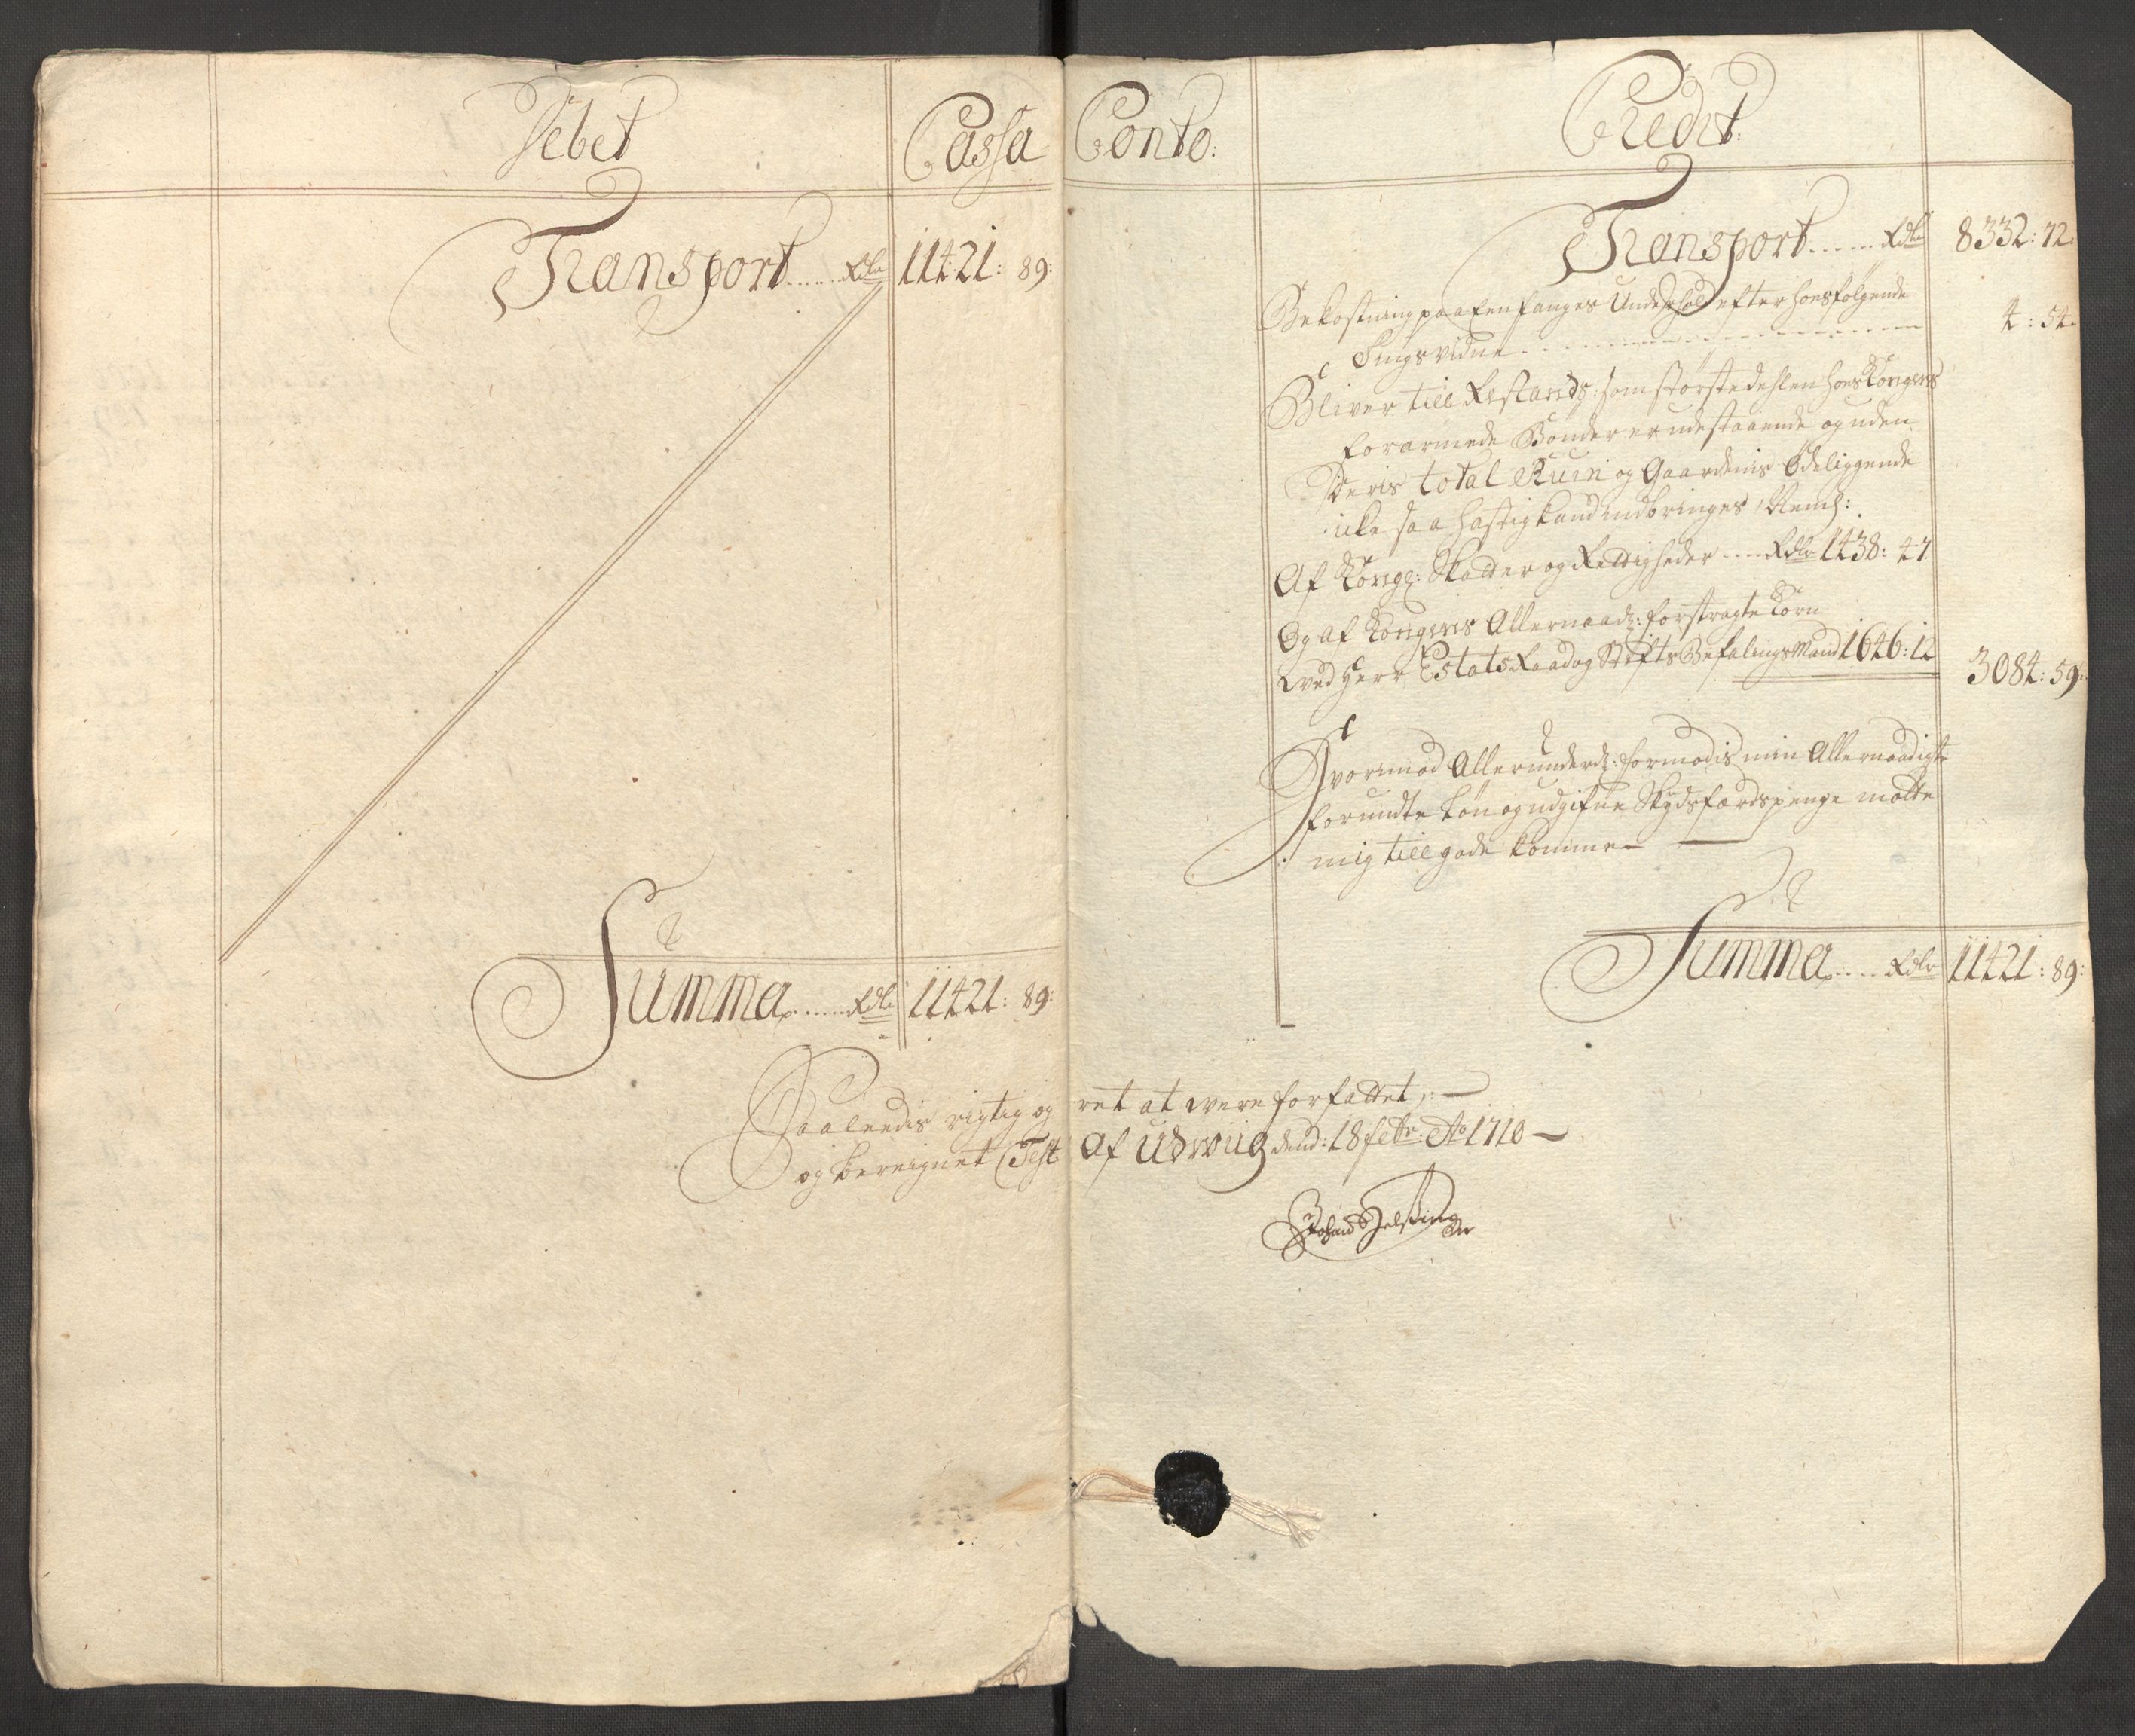 Debet
Cassa Conto:
Credit:
Transport ..... Rdlr 11421: 89:
Summa ..... Rdlr 11421: 89:
Transport ..... Rdlr 8332: 72:
Bekostning paa En fanges Underhold efter hoesfølgende
Tingsvidne - - - - - - - - - - 4: 54.
Bliver till Restands: som størstedehlen hoes Kongens
forarmede Bønder er udestaaende og uden
Deris total Ruin og Gaardenis Ødeliggende
icke saa hastig kand indbringes, Neml:
Af Kongl: Skatter og Rettigheder .... Rdlr 1438: 47
Og af Kongens Allernaadl: forstragte Korn
ved Herr Estats Raad og Stifts Befalings Mand 1646: 12
3084: 59:
Hvorimod Allerunderd: formodis min Allernaadigste
forundte Løn og udgifne Skydsfærdspenge motte
mig till gode komme —
Summa ..... Rdlr 11421: 89:
Saaledis rigtig og ret at were forfattet, —
og beregnet Test: Af Udwiig dend: 18 febr: Ao 1710 —